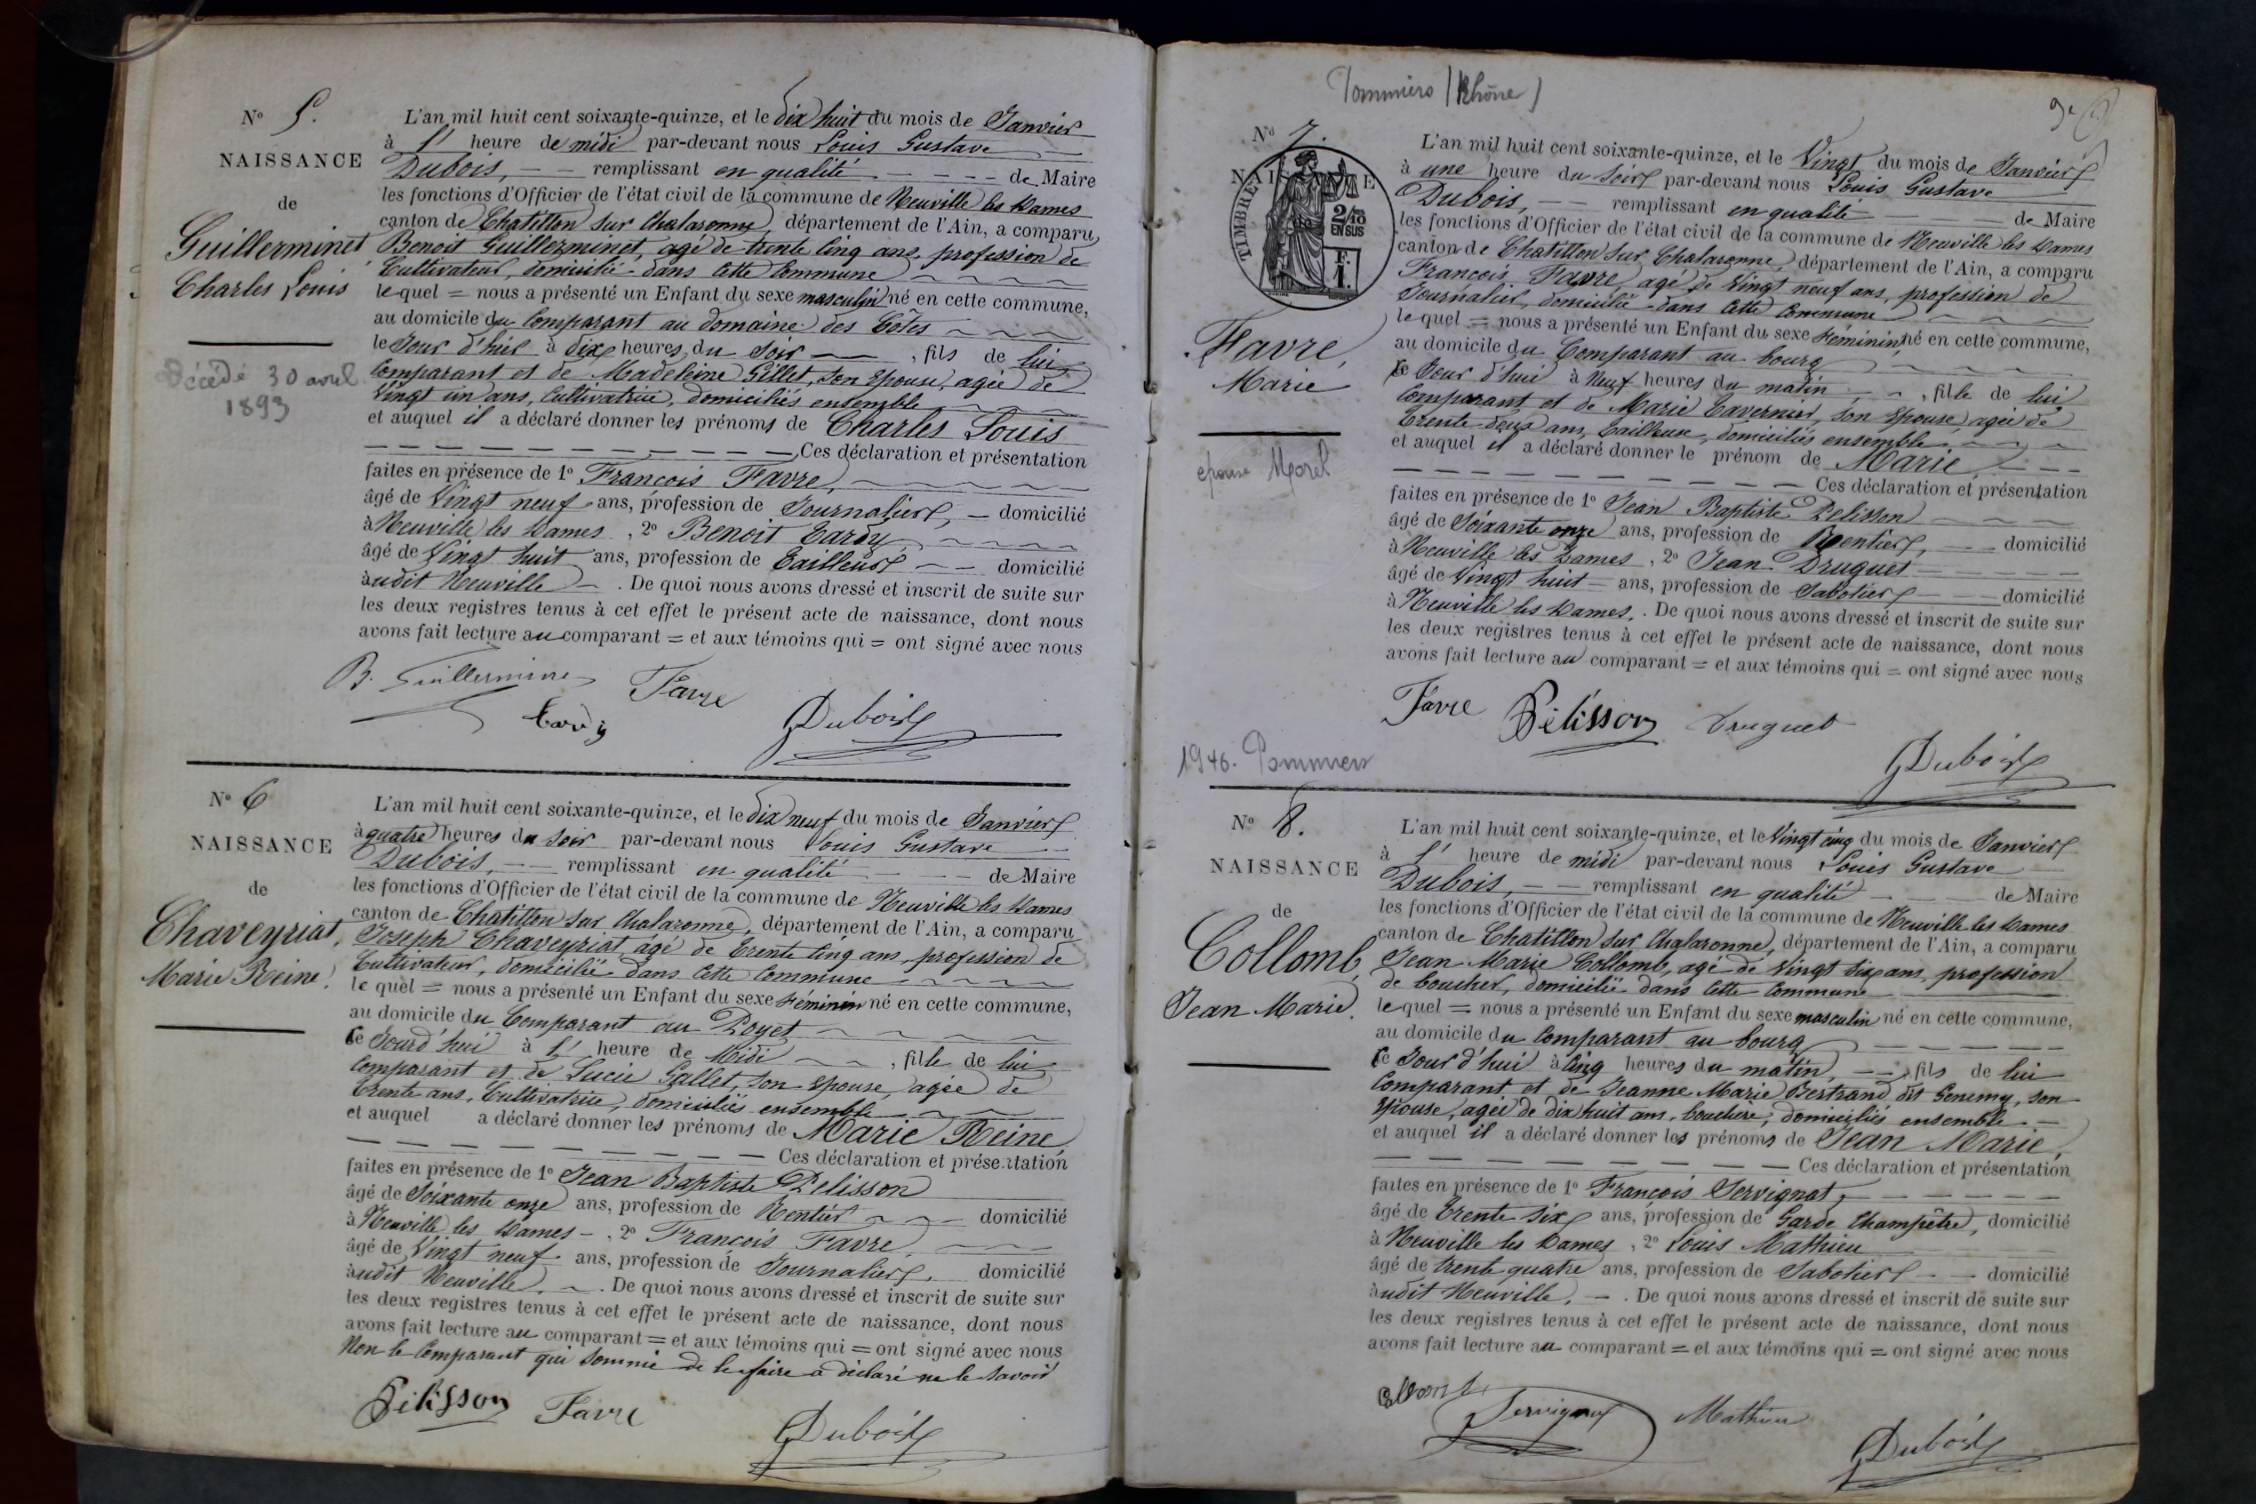 No 5.
NAISSANCE
de
Guillerminet
Charles Louis
Décédé 30 avril
1893
L'an mil huit cent soixante-quinze, et le dix huit du mois de Janvier
à l' heure de midi par-devant nous Louis Gustave
Dubois, remplissant en qualité de Maire
les fonctions d'Officier de l'état civil de la commune de Neuville les Dames
canton de Chatillon sur Chalaronne, département de l'Ain, a comparu
Benoit Guillerminet, agé de trente cinq ans, profession de
Cultivateur, domicilié dans cette Commune
lequel = nous a présenté un Enfant du sexe masculin né en cette commune,
au domicile du Comparant au domaine des Côtes
le Jour d'hier à dix heures du soir, fils de lui
Comparant et de Madeleine Gillet, son épouse, agée de
Vingt un ans, Cultivatrice, domiciliés ensemble
et auquel il a déclaré donner les prénoms de Charles Louis
Ces déclaration et présentation
faites en présence de 1o François Favre,
âgé de Vingt neuf ans, profession de Journalier, domicilié
à Neuville les Dames, 2o Benoit Tardy,
âgé de Vingt huit ans, profession de Tailleur domicilié
àudit Neuville. De quoi nous avons dressé et inscrit de suite sur
les deux registres tenus à cet effet le présent acte de naissance, dont nous
avons fait lecture au comparant = et aux témoins qui = ont signé avec nous
B. Guillerminet Favre
Tardy Dubois
No 6
NAISSANCE
de
Chaveyriat,
Marie Reine.
L'an mil huit cent soixante-quinze, et le dix neuf du mois de Janvier
à quatre heures du soir par-devant nous Louis Gustave
Dubois, remplissant en qualité de Maire
les fonctions d'Officier de l'état civil de la commune de Neuville les Dames
canton de Chatillon sur Chalaronne, département de l'Ain, a comparu
Joseph Chaveyriat âgé de Trente cinq ans, profession de
Cultivateur, domicilié dans cette Commune
lequel = nous a présenté un Enfant du sexe féminin né en cette commune,
au domicile du Comparant au Poyet
ce Jourd'hui à l' heure de Midi, fille de lui
Comparant et de Lucie Gallet, son épouse, agée de
Trente ans, Cultivatrice, domiciliés ensemble
et auquel a déclaré donner les prénoms de Marie Reine
Ces déclaration et présentation
faites en présence de 1o Jean Baptiste Pelisson
âgé de Soixante onze ans, profession de Rentier domicilié
à Neuville les Dames, 2o François Favre,
âgé de Vingt neuf ans, profession de Journalier, domicilié
àudit Neuville. De quoi nous avons dressé et inscrit de suite sur
les deux registres tenus à cet effet le présent acte de naissance, dont nous
avons fait lecture au comparant = et aux témoins qui = ont signé avec nous
Non le Comparant qui sommé de le faire a déclaré ne le savoir
Pélisson Favre
Dubois
Pommiers (Rhône)
No 7.
TIMBRE
2/10
EN SUS
F.
1.
Favre,
Marie
épouse Morel
1946. Pommiers
L'an mil huit cent soixante-quinze, et le Vingt du mois de Janvier
à une heure du soir par-devant nous Louis Gustave
Dubois, remplissant en qualité de Maire
les fonctions d'Officier de l'état civil de la commune de Neuville les Dames
canton de Chatillon sur Chalaronne, département de l'Ain, a comparu
François Favre, agé de Vingt neuf ans, profession de
Journalier, domicilié dans cette Commune
lequel = nous a présenté un Enfant du sexe féminin né en cette commune,
au domicile du Comparant au bourg
ce Jour d'hui à Neuf heures du matin, fille de lui
Comparant et de Marie Tavernier, son épouse, agée de
Trente deux ans, Tailleuse, domiciliés ensemble
et auquel il a déclaré donner le prénom de Marie
Ces déclaration et présentation
faites en présence de 1o Jean Baptiste Pelisson
âgé de Soixante onze ans, profession de Rentier, domicilié
à Neuville les Dames, 2o Jean Druguet
âgé de Vingt huit ans, profession de Sabotier domicilié
à Neuville les Dames. De quoi nous avons dressé et inscrit de suite sur
les deux registres tenus à cet effet le présent acte de naissance, dont nous
avons fait lecture au comparant = et aux témoins qui = ont signé avec nous
Favre Pélisson Druguet
Dubois
No 8.
NAISSANCE
de
Collomb,
Jean Marie.
L'an mil huit cent soixante-quinze, et le Vingt cinq du mois de Janvier
à l' heure de midi par-devant nous Louis Gustave
Dubois, remplissant en qualité de Maire
les fonctions d'Officier de l'état civil de la commune de Neuville les Dames
canton de Chatillon sur Chalaronne, département de l'Ain, a comparu
Jean Marie Collomb, agé de Vingt six ans, profession
de boucher, domicilié dans cette Commune
lequel = nous a présenté un Enfant du sexe masculin né en cette commune,
au domicile du Comparant au bourg
ce Jour d'hui à cinq heures du matin, fils de lui
Comparant et de Jeanne Marie Bertrand dit Genemy, son
épouse, agée de dix huit ans, bouchère, domiciliés ensemble
et auquel il a déclaré donner les prénoms de Jean Marie,
Ces déclaration et présentation
faites en présence de 1o François Servignat,
âgé de Trente six ans, profession de Garde Champêtre, domicilié
à Neuville les Dames, 2o Louis Mathieu
âgé de trente quatre ans, profession de Sabotier domicilié
àudit Neuville. De quoi nous avons dressé et inscrit de suite sur
les deux registres tenus à cet effet le présent acte de naissance, dont nous
avons fait lecture au comparant = et aux témoins qui = ont signé avec nous
Servignat Mathieu
Dubois